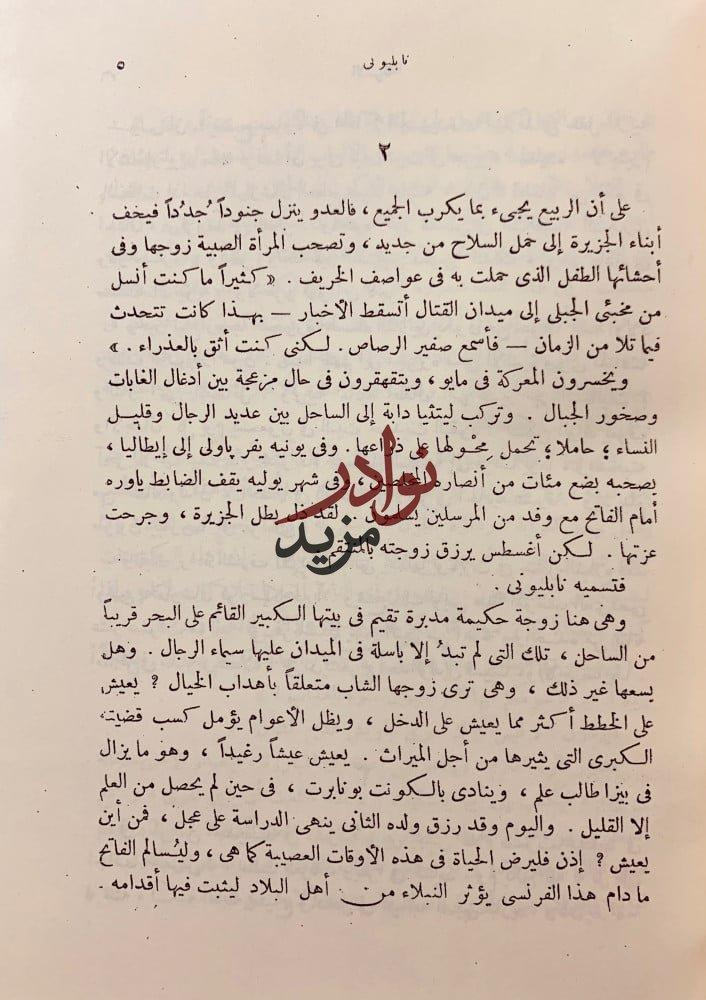 نابليونى
٥
٢
على أن الربيع يجىء بما يكرب الجميع ، فالعدو ينزل جنوداً جُدُداً فيخف
أبناء الجزيرة إلى حمل السلاح من جديد ، وتصحب المرأة الصبية زوجها وفى
أحشائها الطفل الذى حملت به فى عواصف الخريف . « كثيراً ما كنت أنسل
من مخبئى الجبلى إلى ميدان القتال أتسقط الأخبار — بهذا كانت تتحدث
فيما تلا من الزمان — فأسمع صفير الرصاص . لكنى كنت أثق بالعذراء . »
ويخسرون المعركة فى مايو ، ويتقهقرون فى حال مزعجة بين أدغال الغابات
وصخور الجبال . وتركب ليتثيا دابة إلى الساحل بين عديد الرجال وقليل
النساء ؛ حاملا ؛ تحمل مِحْولها على ذراعها . وفى يونيه يفر پاولى إلى إيطاليا ،
يصحبه بضع مئات من أنصاره المخلصين ، وفى شهر يوليه يقف الضابط ياوره
أمام الفاتح مع وفد من المرسلين يسلمون . لقد ذل بطل الجزيرة ، وجرحت
عزتها . لكن أغسطس يرزق زوجته بالمنتقم .
فتسميه نابليونى .
وهى هنا زوجة حكيمة مدبرة تقيم فى بيتها الكبير القائم على البحر قريباً
من الساحل ، تلك التى لم تبدُ إلا باسلة فى الميدان عليها سيماء الرجال . وهل
يسعها غير ذلك ، وهى ترى زوجها الشاب متعلقاً بأهداب الخيال ? يعيش
على الخطط أكثر مما يعيش على الدخل ، ويظل الأعوام يؤمل كسب قضيته
الكبرى التى يثيرها من أجل الميراث . يعيش عيشاً رغيداً ، وهو ما يزال
فى بيزا طالب علم ، وينادى بالكونت بونابرت ، فى حين لم يحصل من العلم
إلا القليل . واليوم وقد رزق ولده الثانى ينهى الدراسة على عجل ، فمن أين
يعيش ? إذن فليرض الحياة فى هذه الأوقات العصيبة كما هى ، وليُسالم الفاتح
ما دام هذا الفرنسى يؤثر النبلاء من أهل البلاد ليثبت فيها أقدامه .
نوادر
مزيد